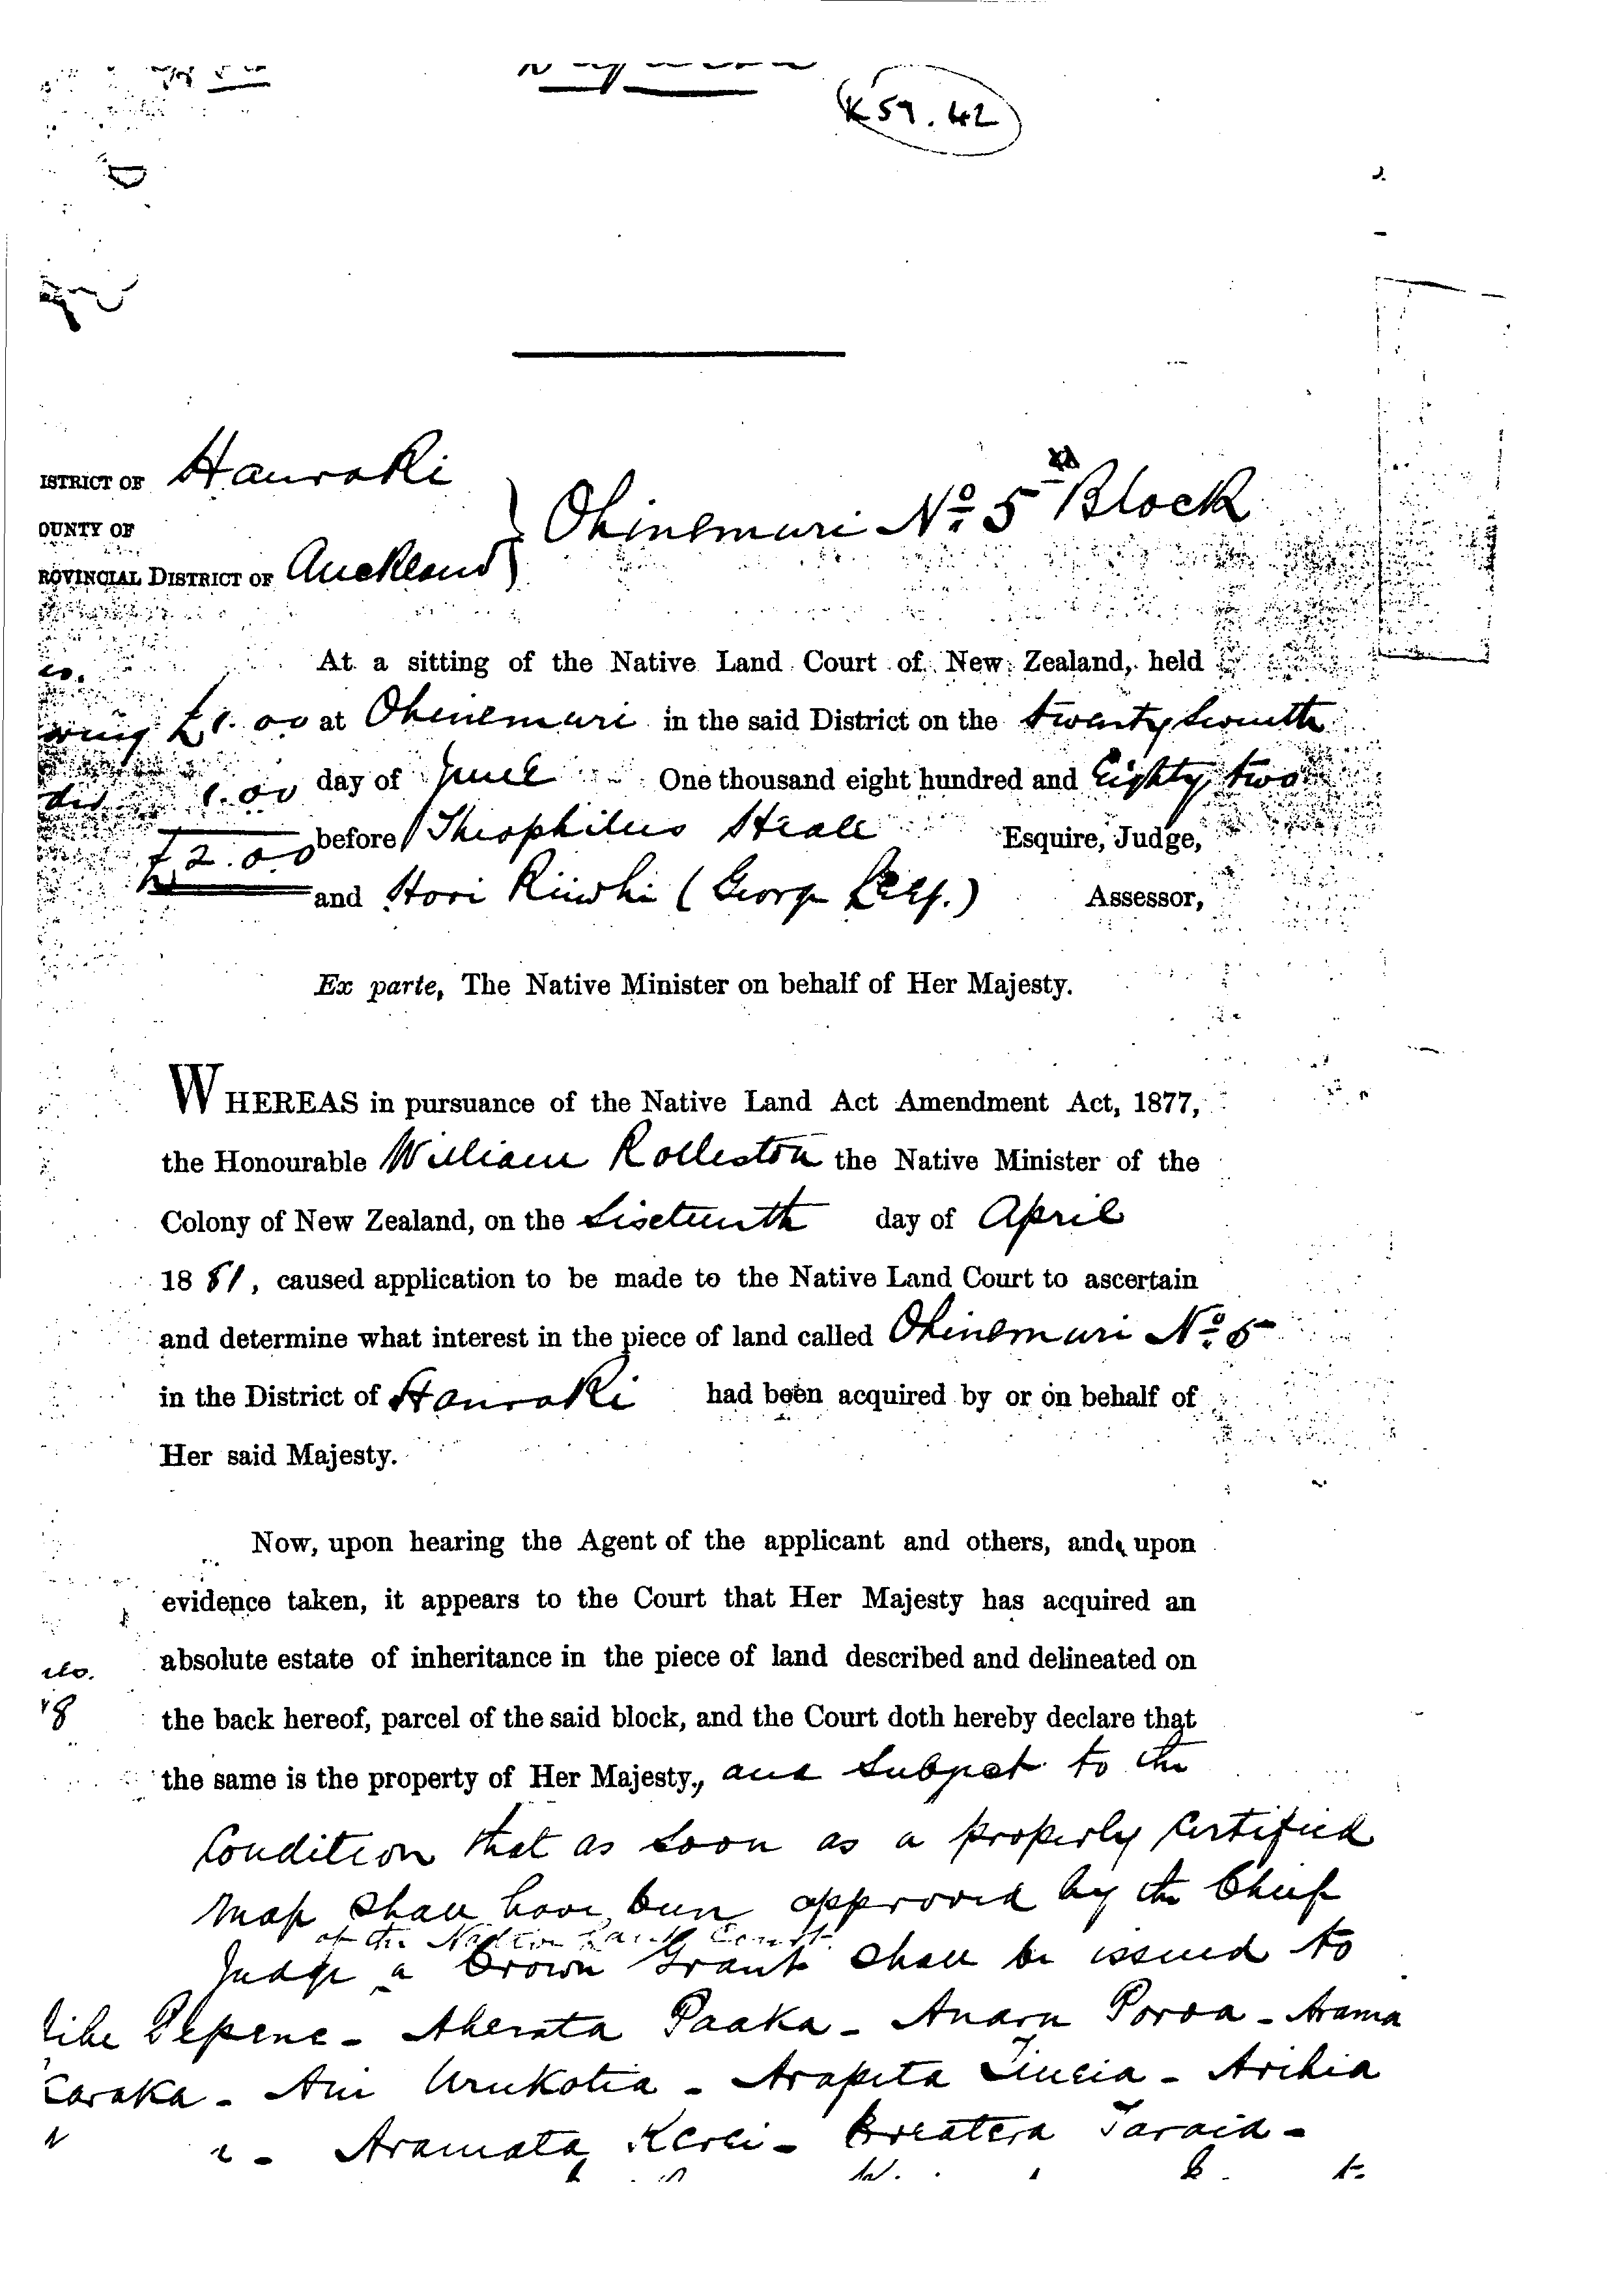 K 59.42
ISTRICT OF Hauraki
OUNTY OF
ROVINCIAL DISTRICT OF Auckland
Ohinemuri No. 5 Block
At a sitting of the Native Land Court of New Zealand, held
£1.00 at Ohinemuri in the said District on the twenty seventh
1.00 day of June One thousand eight hundred and Eighty two
£2.0.0 before Theophilus Heale Esquire, Judge,
and Hori Riiwhi (George Assessor,
Ex parte, The Native Minister on behalf of Her Majesty.
WHEREAS in pursuance of the Native Land Act Amendment Act, 1877,
the Honourable William Rolleston the Native Minister of the
Colony of New Zealand, on the Sixteenth day of April
1881, caused application to be made to the Native Land Court to ascertain
and determine what interest in the piece of land called Ohinemuri No. 5
in the District of Hauraki had been acquired by or on behalf of
Her said Majesty.
Now, upon hearing the Agent of the applicant and others, and upon
evidence taken, it appears to the Court that Her Majesty has acquired an
absolute estate of inheritance in the piece of land described and delineated on
the back hereof, parcel of the said block, and the Court doth hereby declare that
the same is the property of Her Majesty, and subject to the
Condition that as soon as a properly certified
map shall have been approved by the Chief
of the Native Land Court
Judge a Crown Grant shall be issued to
Pepene - Aherata Paaka - Anaru Poroa - Arama
Karaka - Ani Urukotia - Arapeta - Arihia
Aramata Kerei - Taraia -